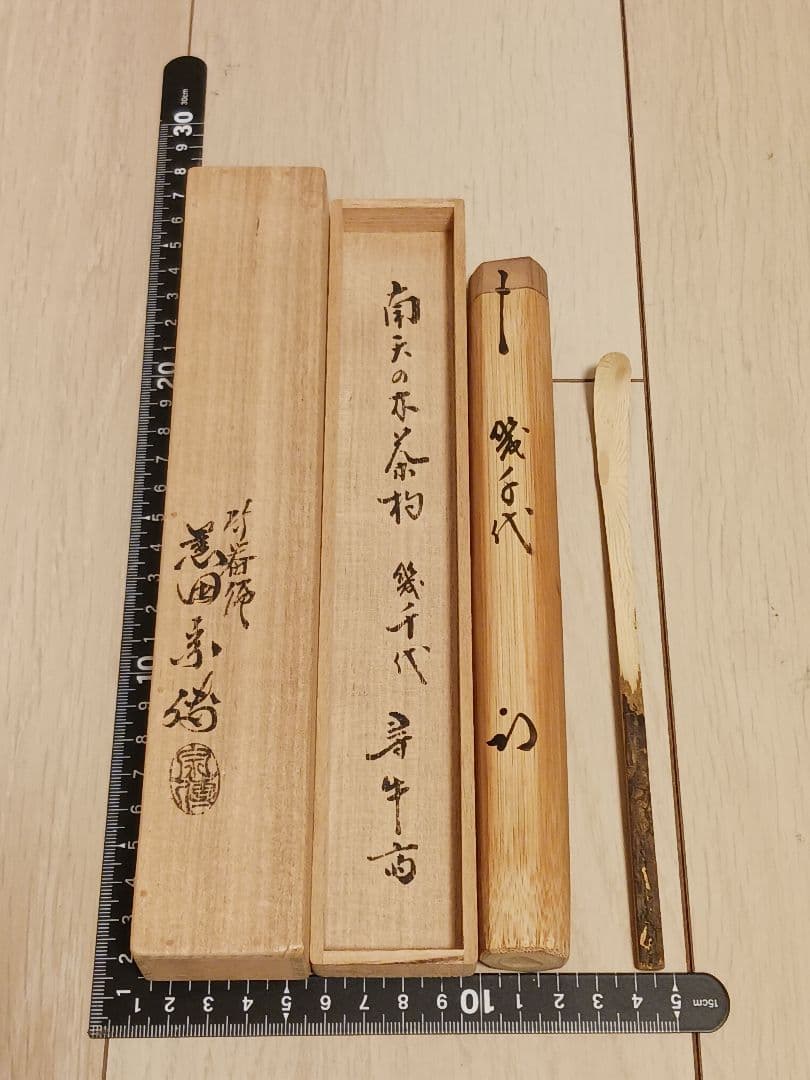 竹器師
黒田宗傳
宗傳
南天の木茶杓　幾千代　尋牛斎
幾千代
30cm
30 9 8 7 6 5 4 3 2 1 20 9 8 7 6 5 4 3 2 1 10 9 8 7 6 5 4 3 2 1
1 2 3 4 5 6 7 8 9 10 1 2 3 4 5
15cm